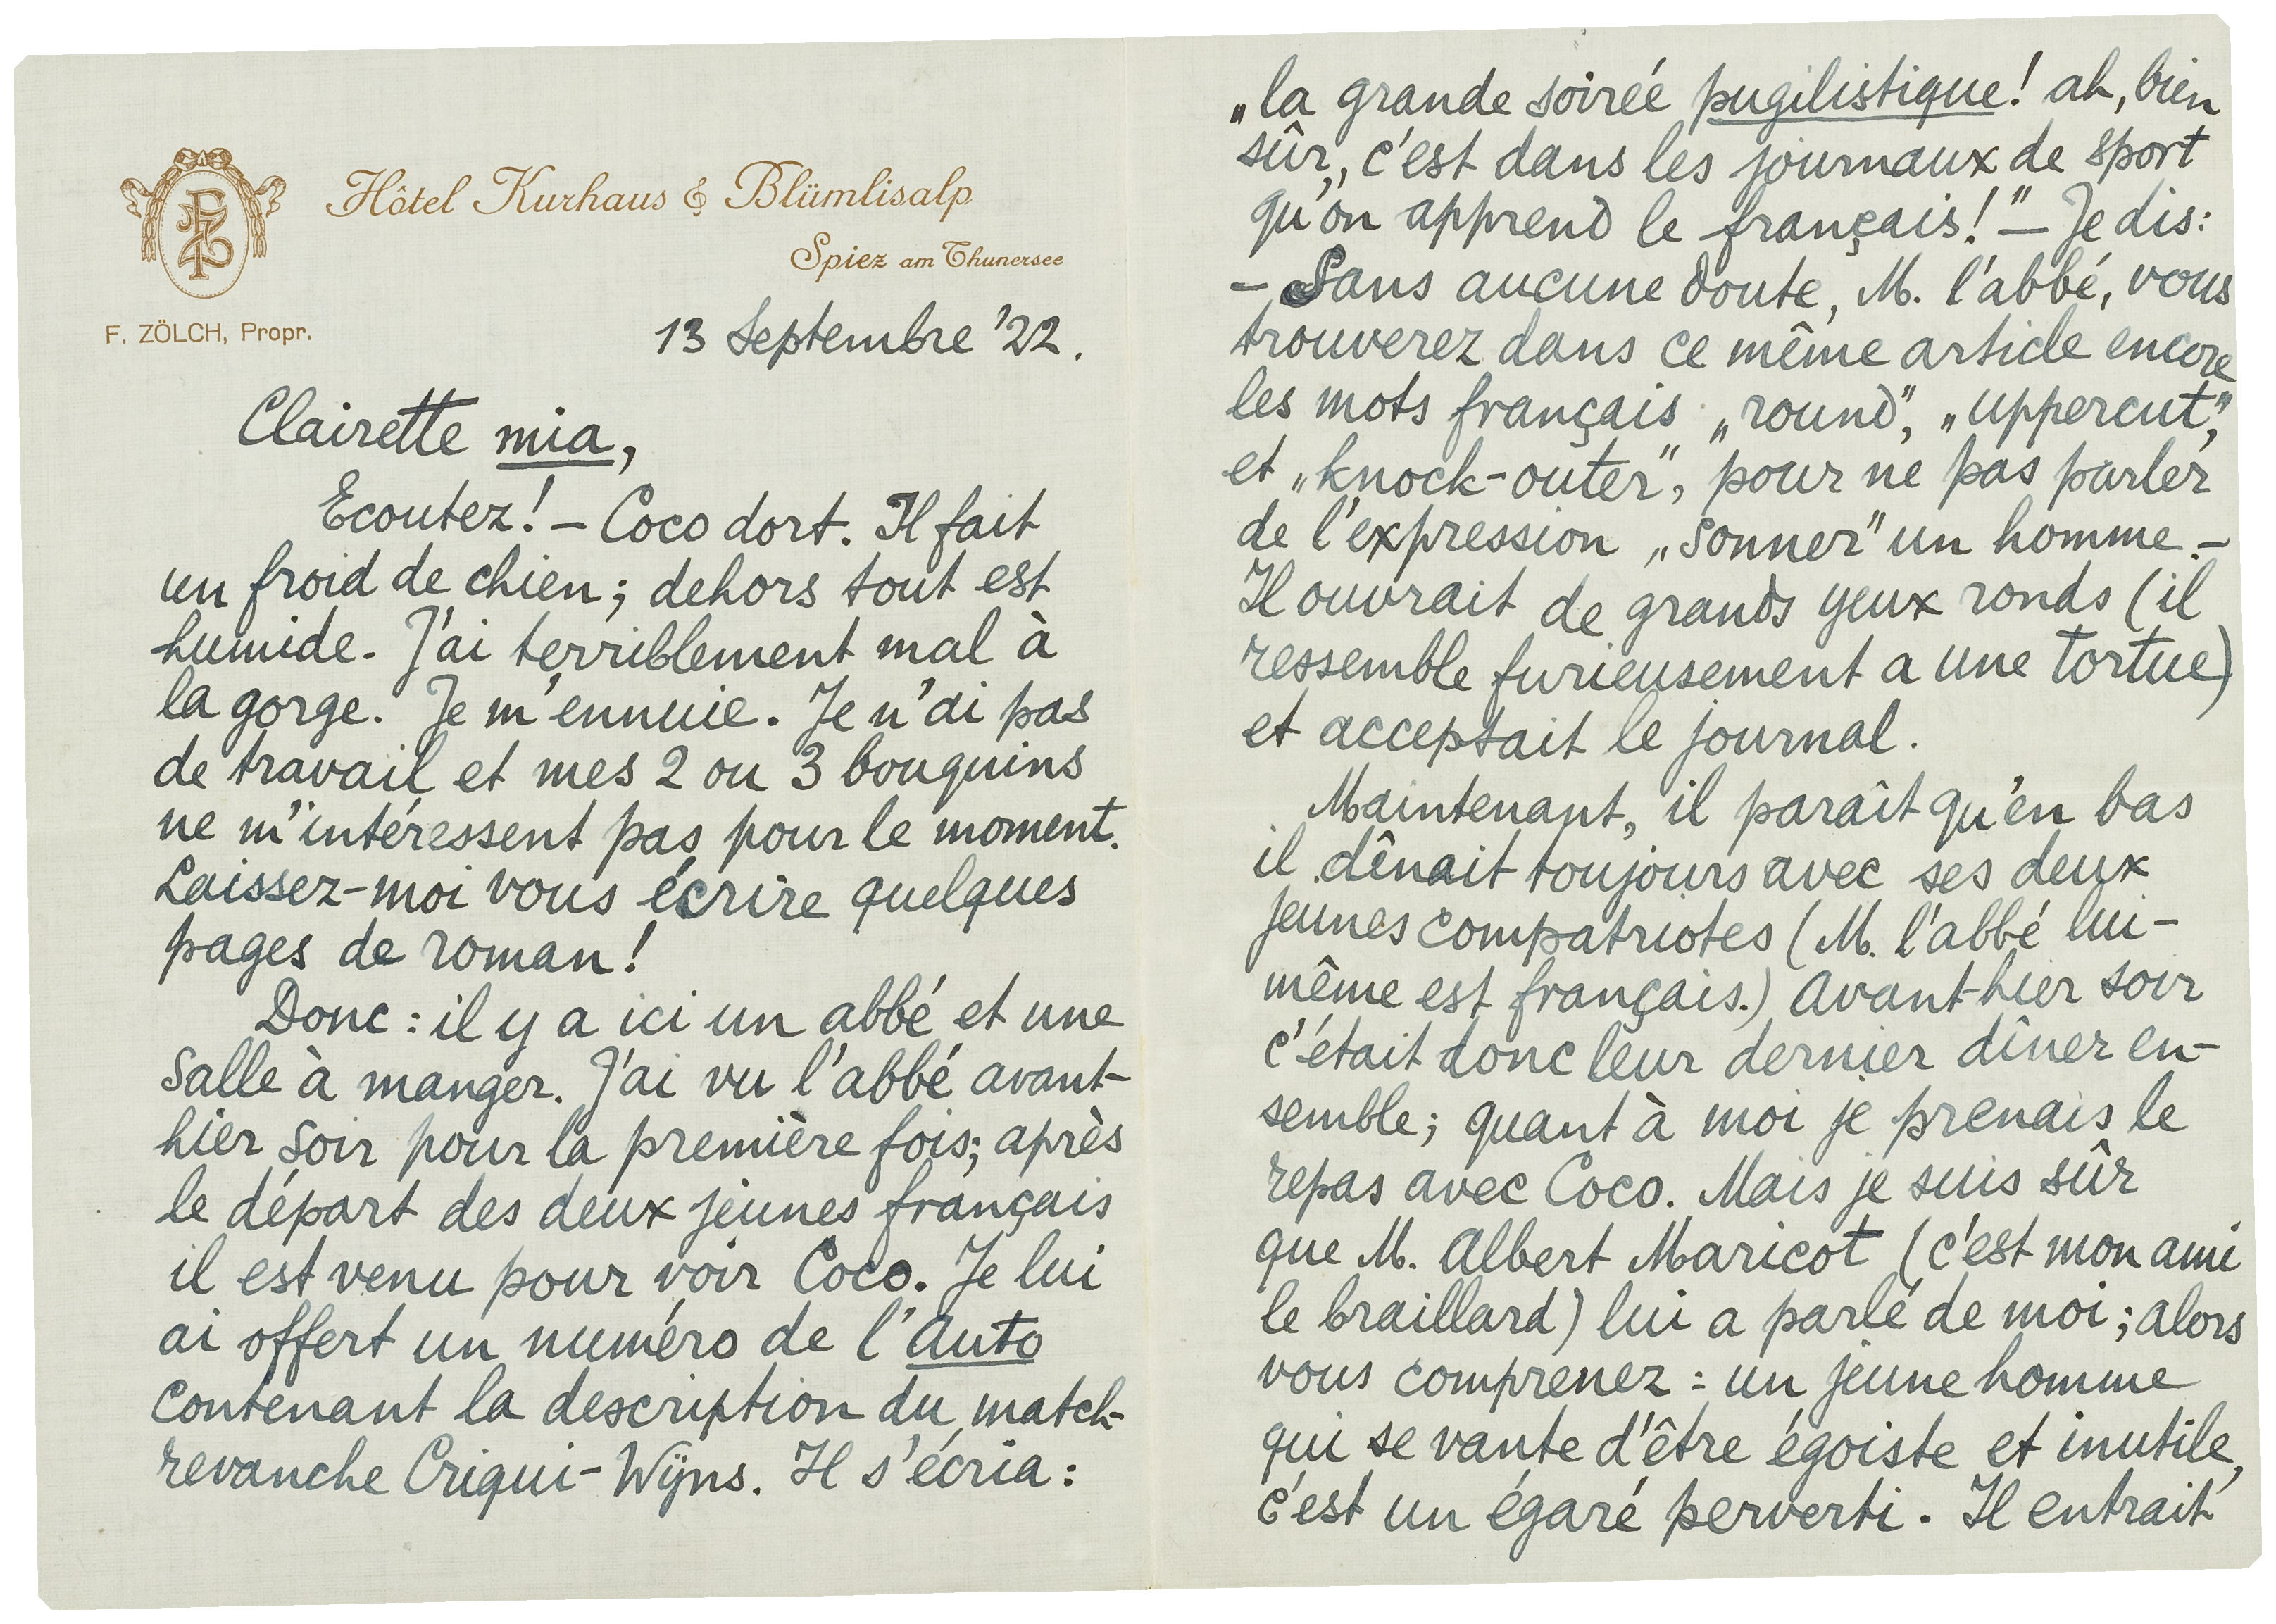 Hôtel Kurhaus & Blümlisalp
Spiez am Thunersee
F. ZÖLCH, Propr.
13 Septembre '22.
Clairette mia,
Ecoutez! – Coco dort. Il fait
un froid de chien; dehors tout est
humide. J'ai terriblement mal à
la gorge. Je m'ennuie. Je n'ai pas
de travail et mes 2 ou 3 bouquins
ne m'intéressent pas pour le moment.
Laissez-moi vous écrire quelques
pages de roman!
Donc: il y a ici un abbé et une
salle à manger. J'ai vu l'abbé avant-
hier soir pour la première fois; après
le départ des deux jeunes français
il est venu pour voir Coco. Je lui
ai offert un numéro de l'Auto
contenant la description du match-
revanche Criqui-Wyns. Il s'écria:
„la grande soireé pugilistique! ah, bien
sûr„ c'est dans les journaux de sport
qu'on apprend le français!" – Je dis:
– Sans aucune doute, M. l'abbé, vous
trouverez dans ce même article encore
les mots français „round", „uppercut",
et „knock-outer", pour ne pas parler
de l'expression „sonner" un homme. –
Il ouvrait de grands yeux ronds (il
ressemble furieusement a une tortue)
et acceptait le journal.
Maintenant, il paraît qu'en bas
il dînait toujours avec ses deux
jeunes compatriotes (M. l'abbé lui-
même est français.) Avant-hier soir
c'était donc leur dernier dîner en-
semble; quant à moi je prenais le
repas avec Coco. Mais je suis sûr
que M. Albert Maricot (c'est mon ami
le braillard) lui a parlé de moi; alors
vous comprenez: un jeune homme
qui se vante d'être égoiste et inutile,
c'est un égaré perverti. Il entrait